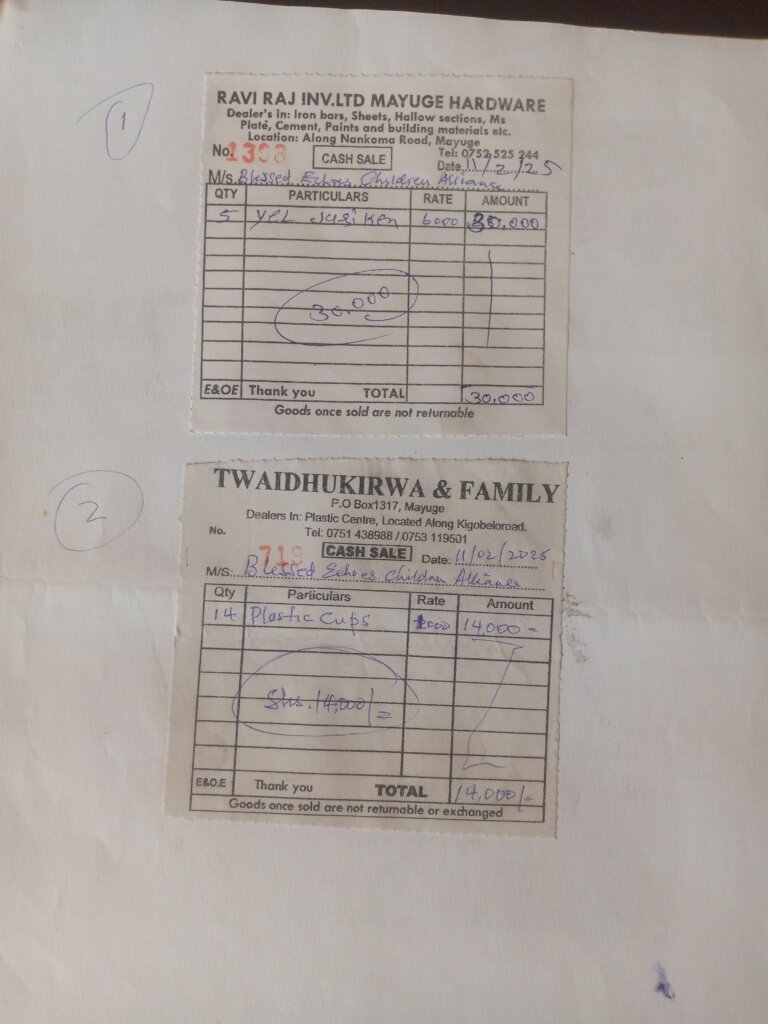 1
RAVI RAJ INV.LTD MAYUGE HARDWARE
Dealer's in: Iron bars, Sheets, Hallow sections, Ms
Plate, Cement, Paints and building materials etc.
Location: Along Nankoma Road, Mayuge
No. CASH SALE Tel: 0752 525 244
Date 11/2/25
M/s. Blessed Echoes Children Alliance
QTY PARTICULARS RATE AMOUNT
5 Yel Jug 6000 30,000
30.000
E&OE Thank you TOTAL 30.000
Goods once sold are not returnable
2
TWAIDHUKIRWA & FAMILY
P.O Box1317, Mayuge
Dealers In: Plastic Centre, Located Along Kigobeloroad.
No. Tel: 0751 438988 / 0753 119501
719 CASH SALE Date: 11/02/2025
M/S: Blessed Echoes Children Alliance
Qty Particulars Rate Amount
14 Plastic Cups 1000 14,000=
Shs. 14,000/=
E&O.E Thank you TOTAL 14,000/=
Goods once sold are not returnable or exchanged